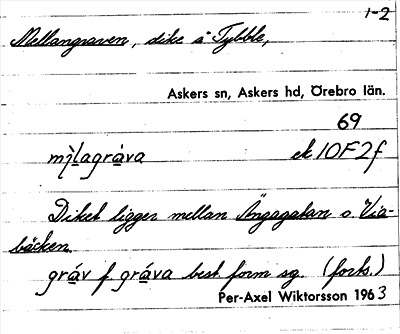 1-2
Mellangraven, dike å Tybble,
Askers sn, Askers hd, Örebro län.
69
mìlagráva ek 10F2f
Diket ligger mellan Ängagatan o. Via-
bäcken.
gráv f. gráva best form sg. (forts.)
Per-Axel Wiktorsson 1963